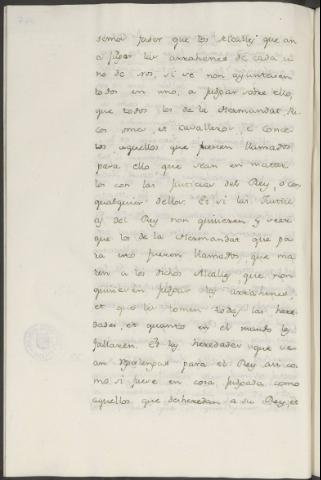 semos facer que los Alcalles que an
a judgar las arrahenes de cada u
no de nos, si se non ayuntaren
todos en uno, a judgar sobre ello,
que todos los de la Hermandat, Ri
cos omes et cavalleros, e Conce
ios aquellos que fueren llamados
para ello, que sean en matar
los con las Justicias del Rey, o con
qualquier dellos. Et si las Justici
as del Rey non quisieren y seer
que los de la Hermandat que pa
ra esto fueren llamados, que ma
ten a los dichos Alcalles, que non
quisieren judgar las arrahenes,
et que les tomen todas las here
dades, et quanto en el mundo les
fallaren. Et las heredades que se
an para el Rey assi co
mo si fuese en cosa judgada como
aquellos que desheredan a su Rey, et